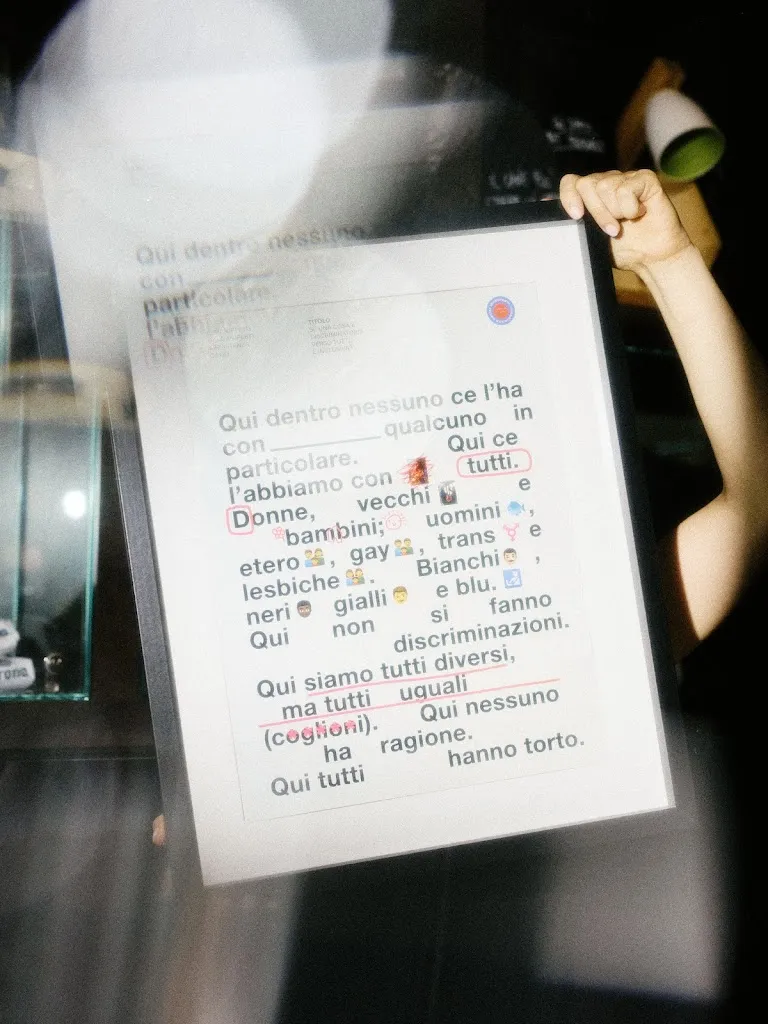 Qui dentro nessuno
con
particolare.
l'abbi
TITOLO
Qui dentro nessuno ce l'ha
con ________ qualcuno in
particolare. Qui ce
l'abbiamo con tutti.
Donne, vecchi e
bambini; uomini ,
etero , gay , trans e
lesbiche . Bianchi ,
neri gialli e blu.
Qui non si fanno
discriminazioni.
Qui siamo tutti diversi,
ma tutti uguali
(coglioni). Qui nessuno
ha ragione.
Qui tutti hanno torto.